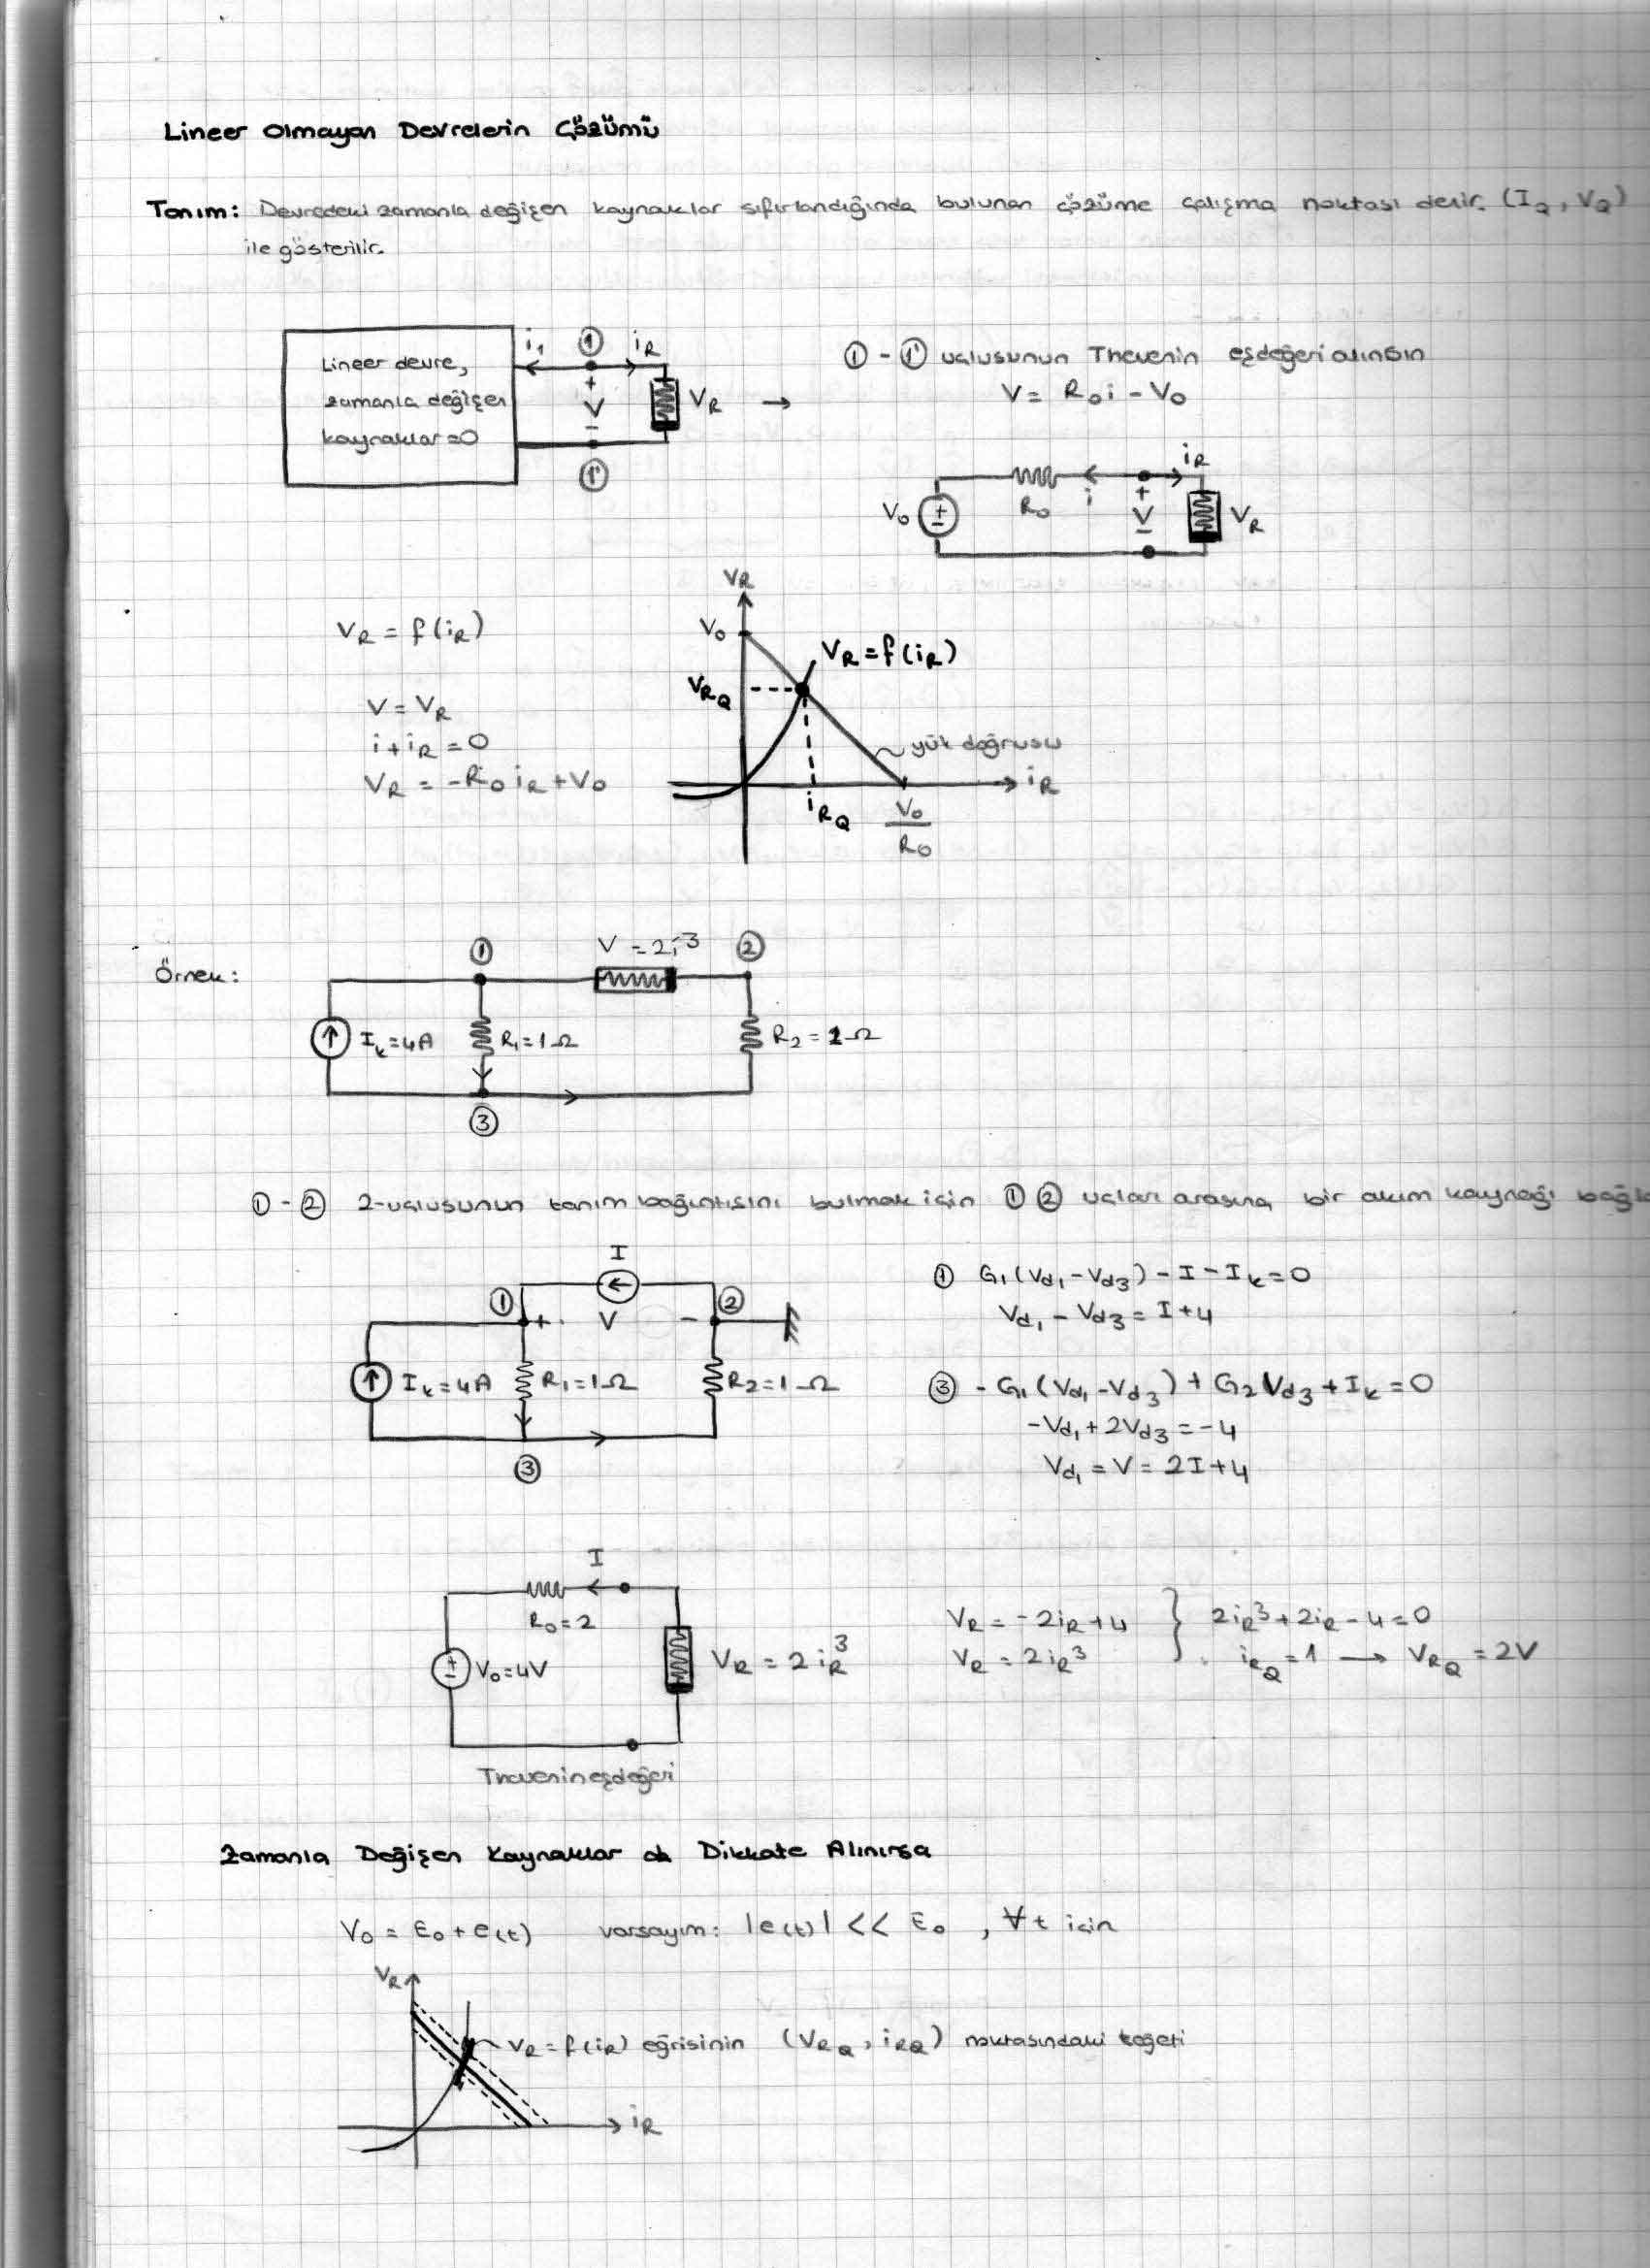 Lineer Olmayan Devrelerin Çözümü
Tanım: Devredeki zamanla değişen kaynaklar sıfırlandığında bulunan çözüme çalışma noktası denir. (I_Q, V_Q)
ile gösterilir.
Lineer devre,
zamanla değişen
kaynaklar =0
i₁ ① i_R
+
V
-
①'
V_R →
①-①' uçlusunun Thevenin eşdeğeri alınsın
V = R₀i - V₀
V₀ + - R₀ i + V - i_R V_R
V_R = f(i_R)
V = V_R
i + i_R = 0
V_R = -R₀ i_R + V₀
V_R
V₀
V_R = f(i_R)
V_RQ
yük doğrusu
i_R
i_RQ
V₀/R₀
Örnek:
① V = 2i³ ②
I_k = 4A R₁ = 1Ω R₂ = 1Ω
③
①-② 2-uçlusunun tanım bağıntısını bulmak için ① ② uçları arasına bir akım kaynağı bağla
I
① + V - ②
I_k = 4A R₁ = 1Ω R₂ = 1Ω
③
① G₁(V_d1 - V_d3) - I - I_k = 0
V_d1 - V_d3 = I + 4
③ -G₁(V_d1 - V_d3) + G₂V_d3 + I_k = 0
-V_d1 + 2V_d3 = -4
V_d1 = V = 2I + 4
I
R₀ = 2
V₀ = 4V
V_R = 2i_R³
Thevenin eşdeğeri
V_R = -2i_R + 4 } 2i_R³ + 2i_R - 4 = 0
V_R = 2i_R³ i_RQ = 1 → V_RQ = 2V
Zamanla Değişen Kaynaklar da Dikkate Alınırsa
V₀ = E₀ + e(t) varsayım: |e(t)| << E₀ , ∀t için
V_R
V_R = f(i_R) eğrisinin (V_RQ, i_RQ) noktasındaki teğeti
i_R